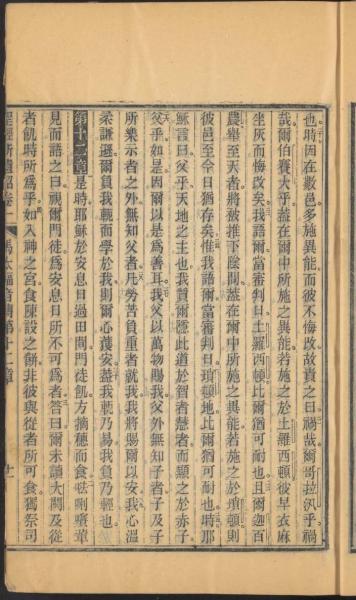 也時因在數邑多施異能而彼不悔改故責之曰禍哉爾哥拉汛乎禍
哉爾伯賽大乎蓋在爾中所施之異能若施之於土羅西頓彼早衣麻
坐灰而悔改矣我語爾當審判日土羅西頓比爾猶可耐也且爾迦百
農舉至天者將被推下陰間蓋在爾中所施之異能若施之於瑣頓則
彼邑至今日猶存矣惟我語爾當審判日瑣頓地比爾猶可耐也時耶
穌言曰父乎天地之主也我贊爾匿此道於智者慧者而顯之於赤子
父乎如是因爾以是爲善耳我父以萬物賜我父外無知子者子及子
所樂示者之外無知父者凡勞苦負重者就我我將賜爾以安我心溫
柔謙遜爾負我軛而學於我則爾心獲安蓋我軛乃易我負乃輕也
第十二章是時耶穌於安息日過田間門徒飢方摘穗而食𠵽唎㘔輩
見而語之曰視爾門徒爲安息日所不可爲者答曰爾未讀大闢及從
者飢時所爲乎如入神之宮食陳設之餅非彼與從者所可食獨祭司
聖經新遺詔卷一 馬太福音傳第十二章 十一